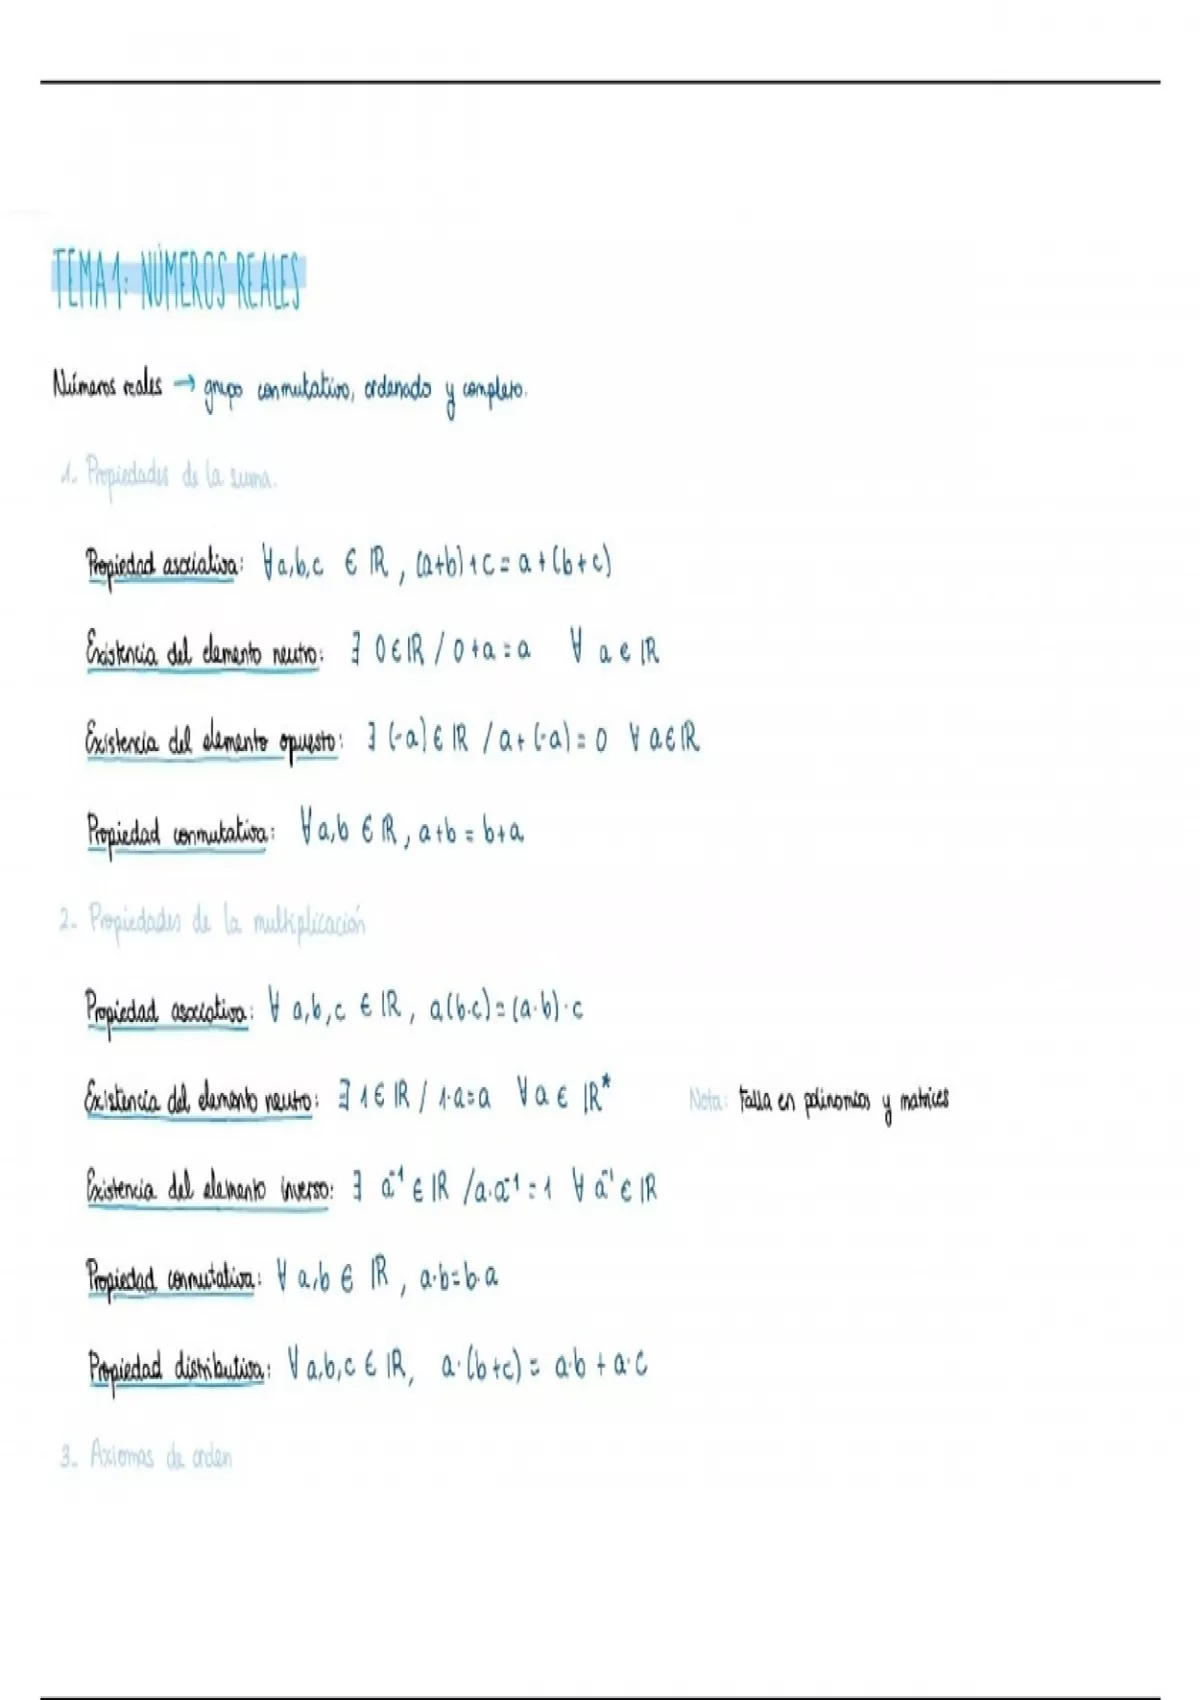 TEMA 1: NÚMEROS REALES
Números reales → grupo conmutativo, ordenado y completo.
1. Propiedades de la suma.
Propiedad asociativa: ∀ a,b,c ∈ ℝ, (a+b)+c = a+(b+c)
Existencia del elemento neutro: ∃ 0 ∈ ℝ / 0+a = a ∀ a ∈ ℝ
Existencia del elemento opuesto: ∃ (-a) ∈ ℝ / a+(-a) = 0 ∀ a ∈ ℝ
Propiedad conmutativa: ∀ a,b ∈ ℝ, a+b = b+a
2. Propiedades de la multiplicación
Propiedad asociativa: ∀ a,b,c ∈ ℝ, a(b·c) = (a·b)·c
Existencia del elemento neutro: ∃ 1 ∈ ℝ / 1·a = a ∀ a ∈ ℝ* Nota: Falla en polinomios y matrices
Existencia del elemento inverso: ∃ a⁻¹ ∈ ℝ / a·a⁻¹ = 1 ∀ a⁻¹ ∈ ℝ
Propiedad conmutativa: ∀ a,b ∈ ℝ, a·b = b·a
Propiedad distributiva: ∀ a,b,c ∈ ℝ, a·(b+c) = a·b + a·c
3. Axiomas de orden